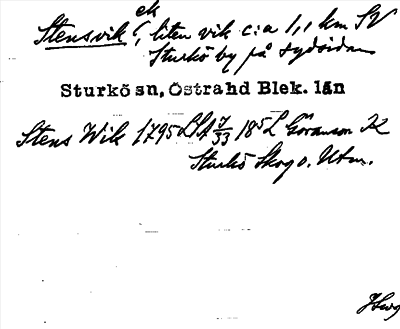 ek
Stensvik, liten vik c:a 1,1 km SV
Sturkö by på sydsidan
Sturkö sn, Östra hd Blek. län
Stens Wik 1795 LSA 7/33 18 5/2 Göransson K
Sturkö Skog o. Utm.